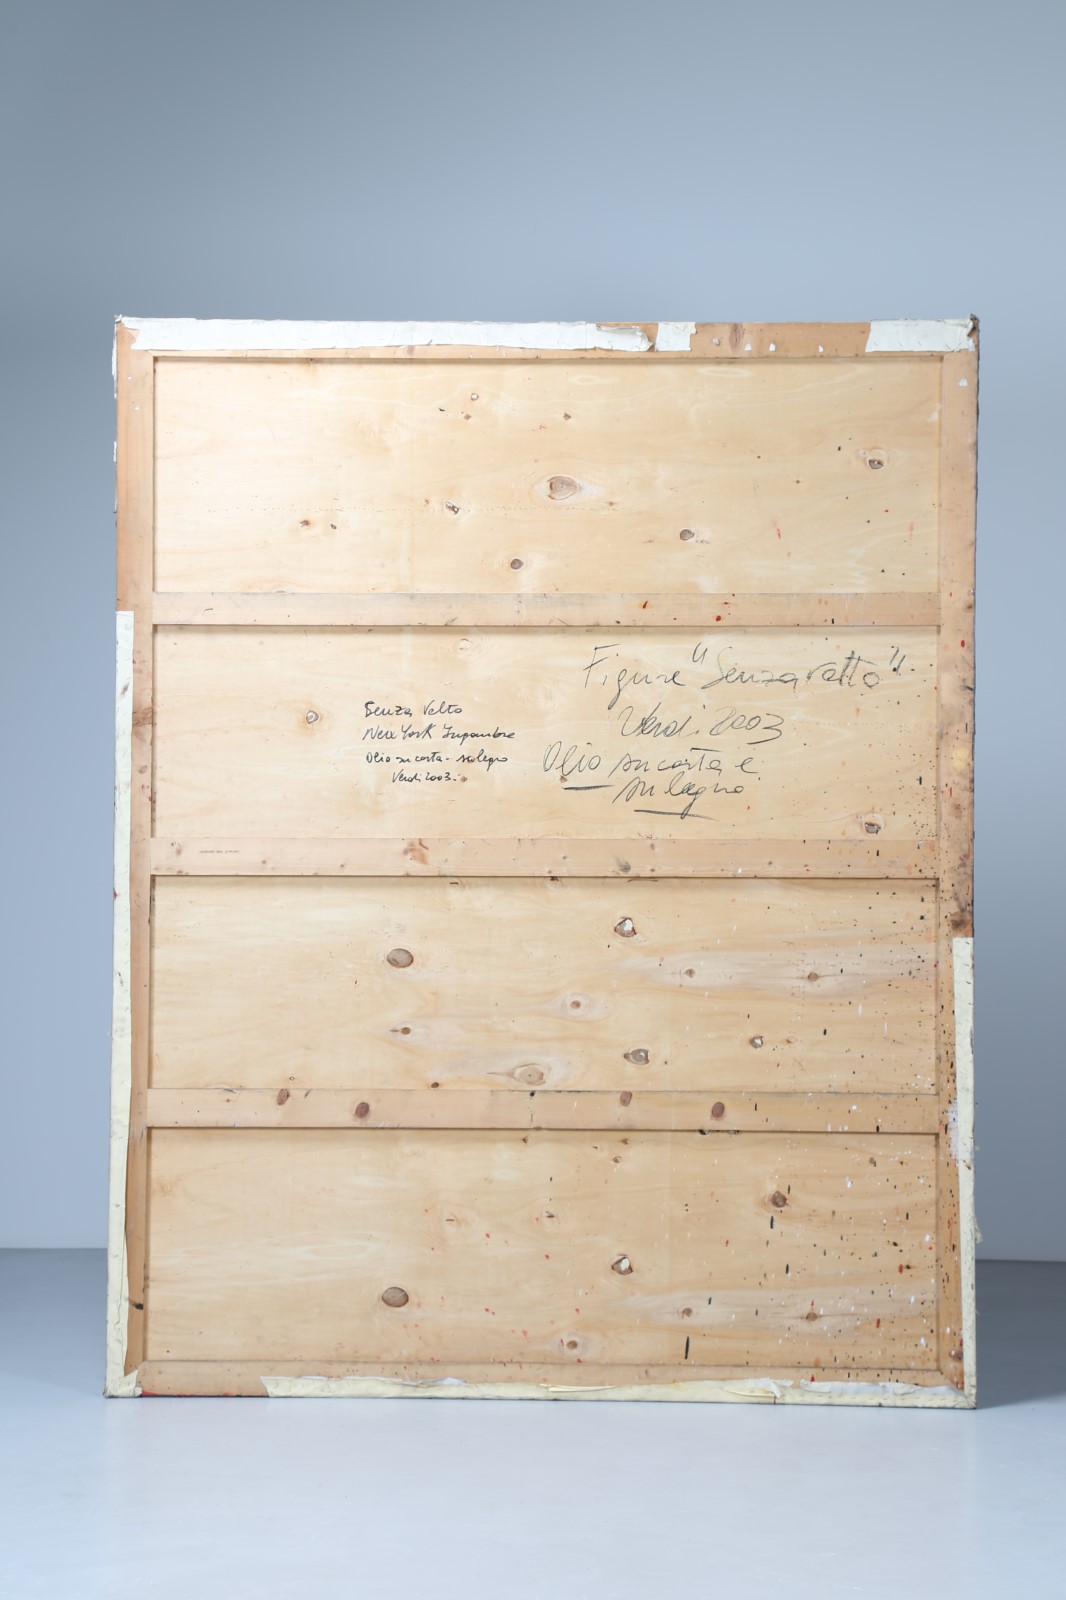 Figure "Senza volto".
Verdi. 2003
Olio su carta e
su legno
Senza Volto
New York
Olio su carta - su legno
Verdi 2003.